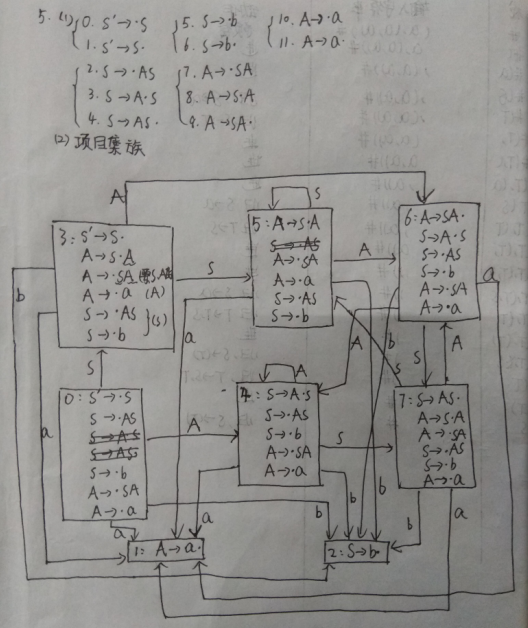 5. (1) 0. S'→·S 5. S→·b 10. A→·a
1. S'→S· 6. S→b· 11. A→a·
2. S→·AS 7. A→·SA
3. S→A·S 8. A→S·A
4. S→AS· 9. A→SA·
(2) 项目集族
A
S
3: S'→S·
A→S·A
A→·SA
A→·a (A)
S→·AS
S→·b } (S)
5: A→S·A
S→·AS
A→·SA
A→·a
S→·AS
S→·b
6: A→SA·
S→A·S
S→·AS
S→·b
A→·SA
A→·a
S
A
b
a
a
b
A
S
A
S
S
0: S'→·S
S→·AS
S→A·S
S→AS·
S→·b
A→·SA
A→·a
A
A
4: S→A·S
S→·AS
S→·b
A→·SA
A→·a
S
7: S→AS·
A→S·A
A→·SA
S→·AS
S→·b
A→·a
a
a
a
b
b
b
b
a
1: A→a·
2: S→b·